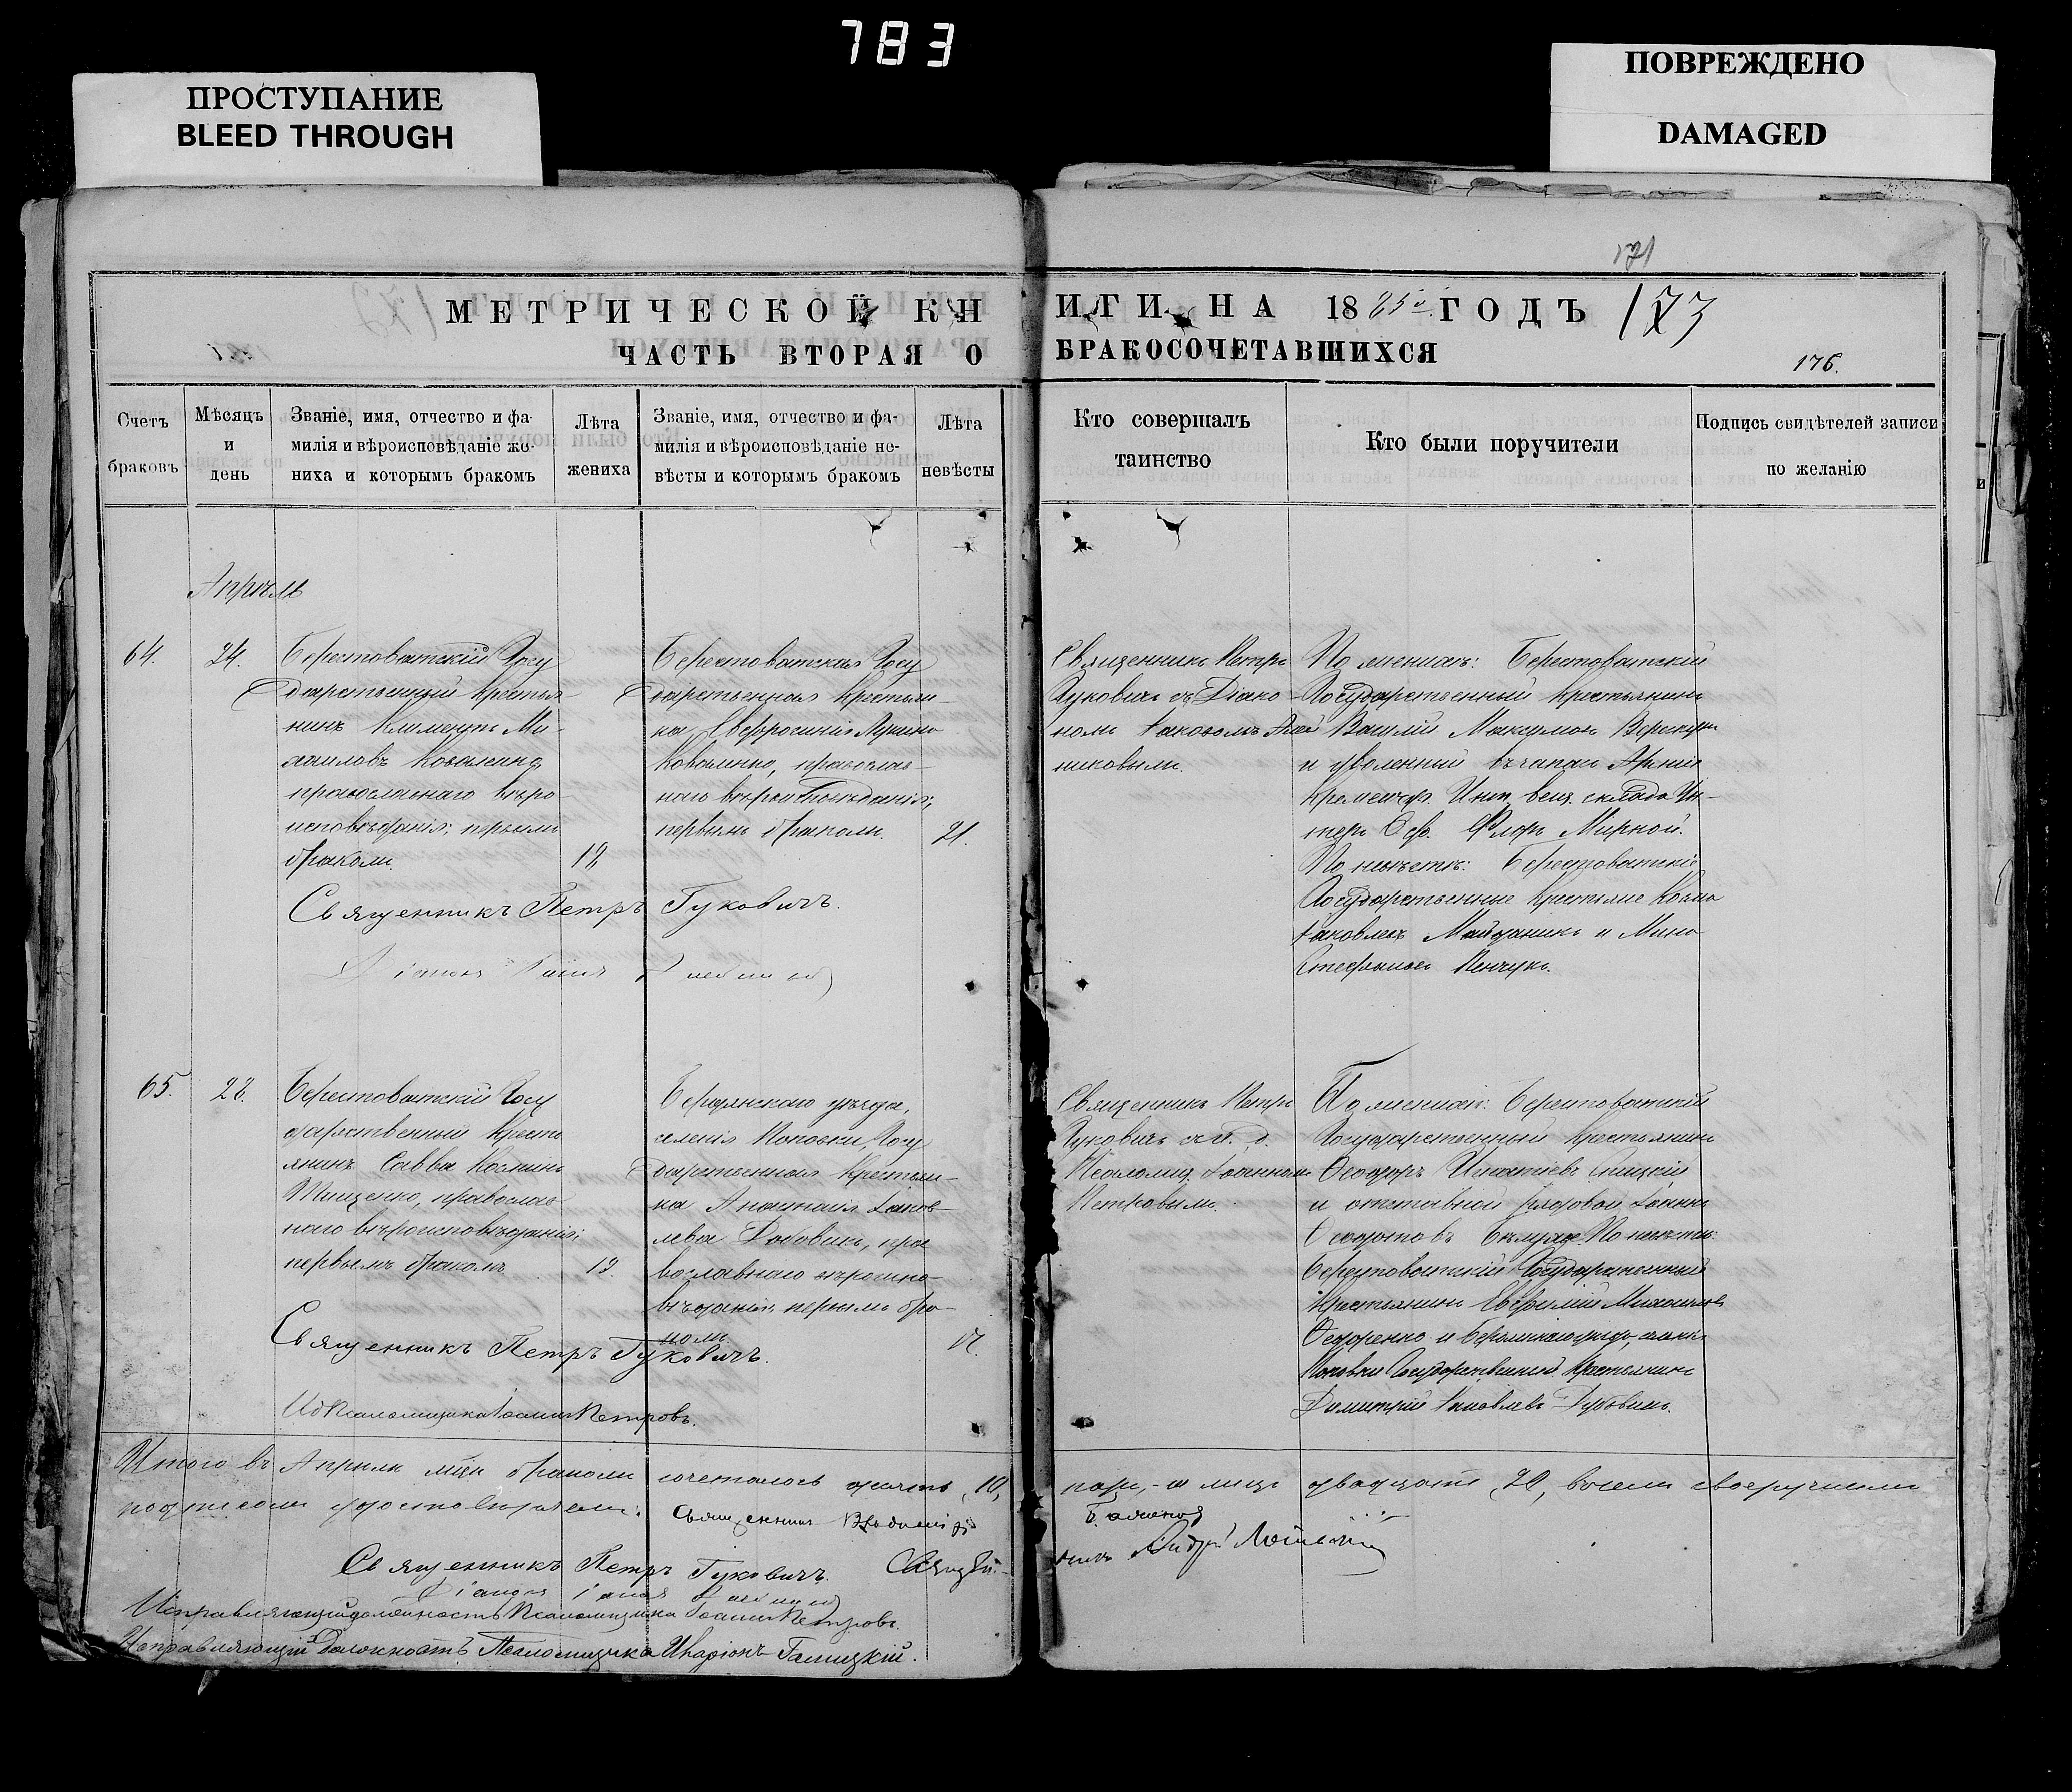 783
ПРОСТУПАНИЕ
BLEED THROUGH
ПОВРЕЖДЕНО
DAMAGED
171
МЕТРИЧЕСКОЙ КНИГИ НА 1885й ГОДЪ 173
ЧАСТЬ ВТОРАЯ О БРАКОСОЧЕТАВШИХСЯ
176.
Счетъ
браковъ
Мѣсяцъ
и
день
Званіе, имя, отчество и фа-
милія и вѣроисповѣданіе же-
ниха и которымъ бракомъ
Лѣта
жениха
Званіе, имя, отчество и фа-
милія и вѣроисповѣданіе не-
вѣсты и которымъ бракомъ
Лѣта
невѣсты
Кто совершалъ
таинство
Кто были поручители
Подпись свидѣтелей записи
по желанію
Апрѣль
64.
24.
Берестоватскій Госу
дарственный крестья
нинъ Климентъ Ми-
хаиловъ
православнаго вѣро
исповѣданія; первымъ
бракомъ.
Берестоватская Госу
дарственная крестьян-
ка Евфросинія Лукина
Коваленко, православ-
наго вѣроисповѣданія;
первымъ бракомъ.
21.
Священникъ Петръ
Гуковичъ съ Діако-
номъ Іаковомъ
никовымъ.
По женихѣ: Берестоватскій
Государственный крестьянинъ
Василій Максимовъ
и уволенный въ запас Арміи
Кременчуг. вещ. склада Ун-
теръ Оф. Флоръ Мирной.
По невѣстѣ: Берестоватскіе
Государственные крестьяне Козма
Іаковлевъ Майданикъ и Мина
Стефановъ
Священникъ Петръ Гуковичъ.
Діаконъ
65.
28.
Берестоватскій Госу
дарственный кресть
янинъ Савва Козминъ
Тищенко, православ-
наго вѣроисповѣданія;
первымъ бракомъ
Бердянскаго уѣзда,
селенія Поповки, Госу
дарственная крестьян-
ка Анастасія Іаков-
лева Дубовикъ, пра
вославнаго вѣроиспо-
вѣданія; первымъ бра-
комъ.
Священникъ Петръ
Гуковичъ съ и. д.
Псаломщ. Іоанномъ
Петровымъ.
По женихѣ: Берестоватскій
Государственный крестьянинъ
Ѳеодоръ Игнатіевъ
и отставной рядовой Іоаннъ
Ѳеодотовъ По невѣстѣ:
Берестоватскій Государственный
крестьянинъ Евфимій Михаиловъ
Ѳедоренко и Бердянскаго уѣзда, селенія
Поповки Государственный крестьянинъ
Димитрій Іаковлевъ Дубовикъ.
Священникъ Петръ Гуковичъ.
ИдПсаломщика Іоаннъ Петровъ.
Итого въ Апрѣлѣ мцѣ бракомъ сочеталось десять, 10, паръ, - а лицъ двадцать 20, въ чемъ своеручнымъ
подписомъ удостовѣряемъ:
Священникъ
Священникъ Петръ Гуковичъ.
Діаконъ
Исправляющій должность Псаломщика Іоаннъ Петровъ.
Исправляющій Должность Псаломщика Иларіонъ Галицкій.